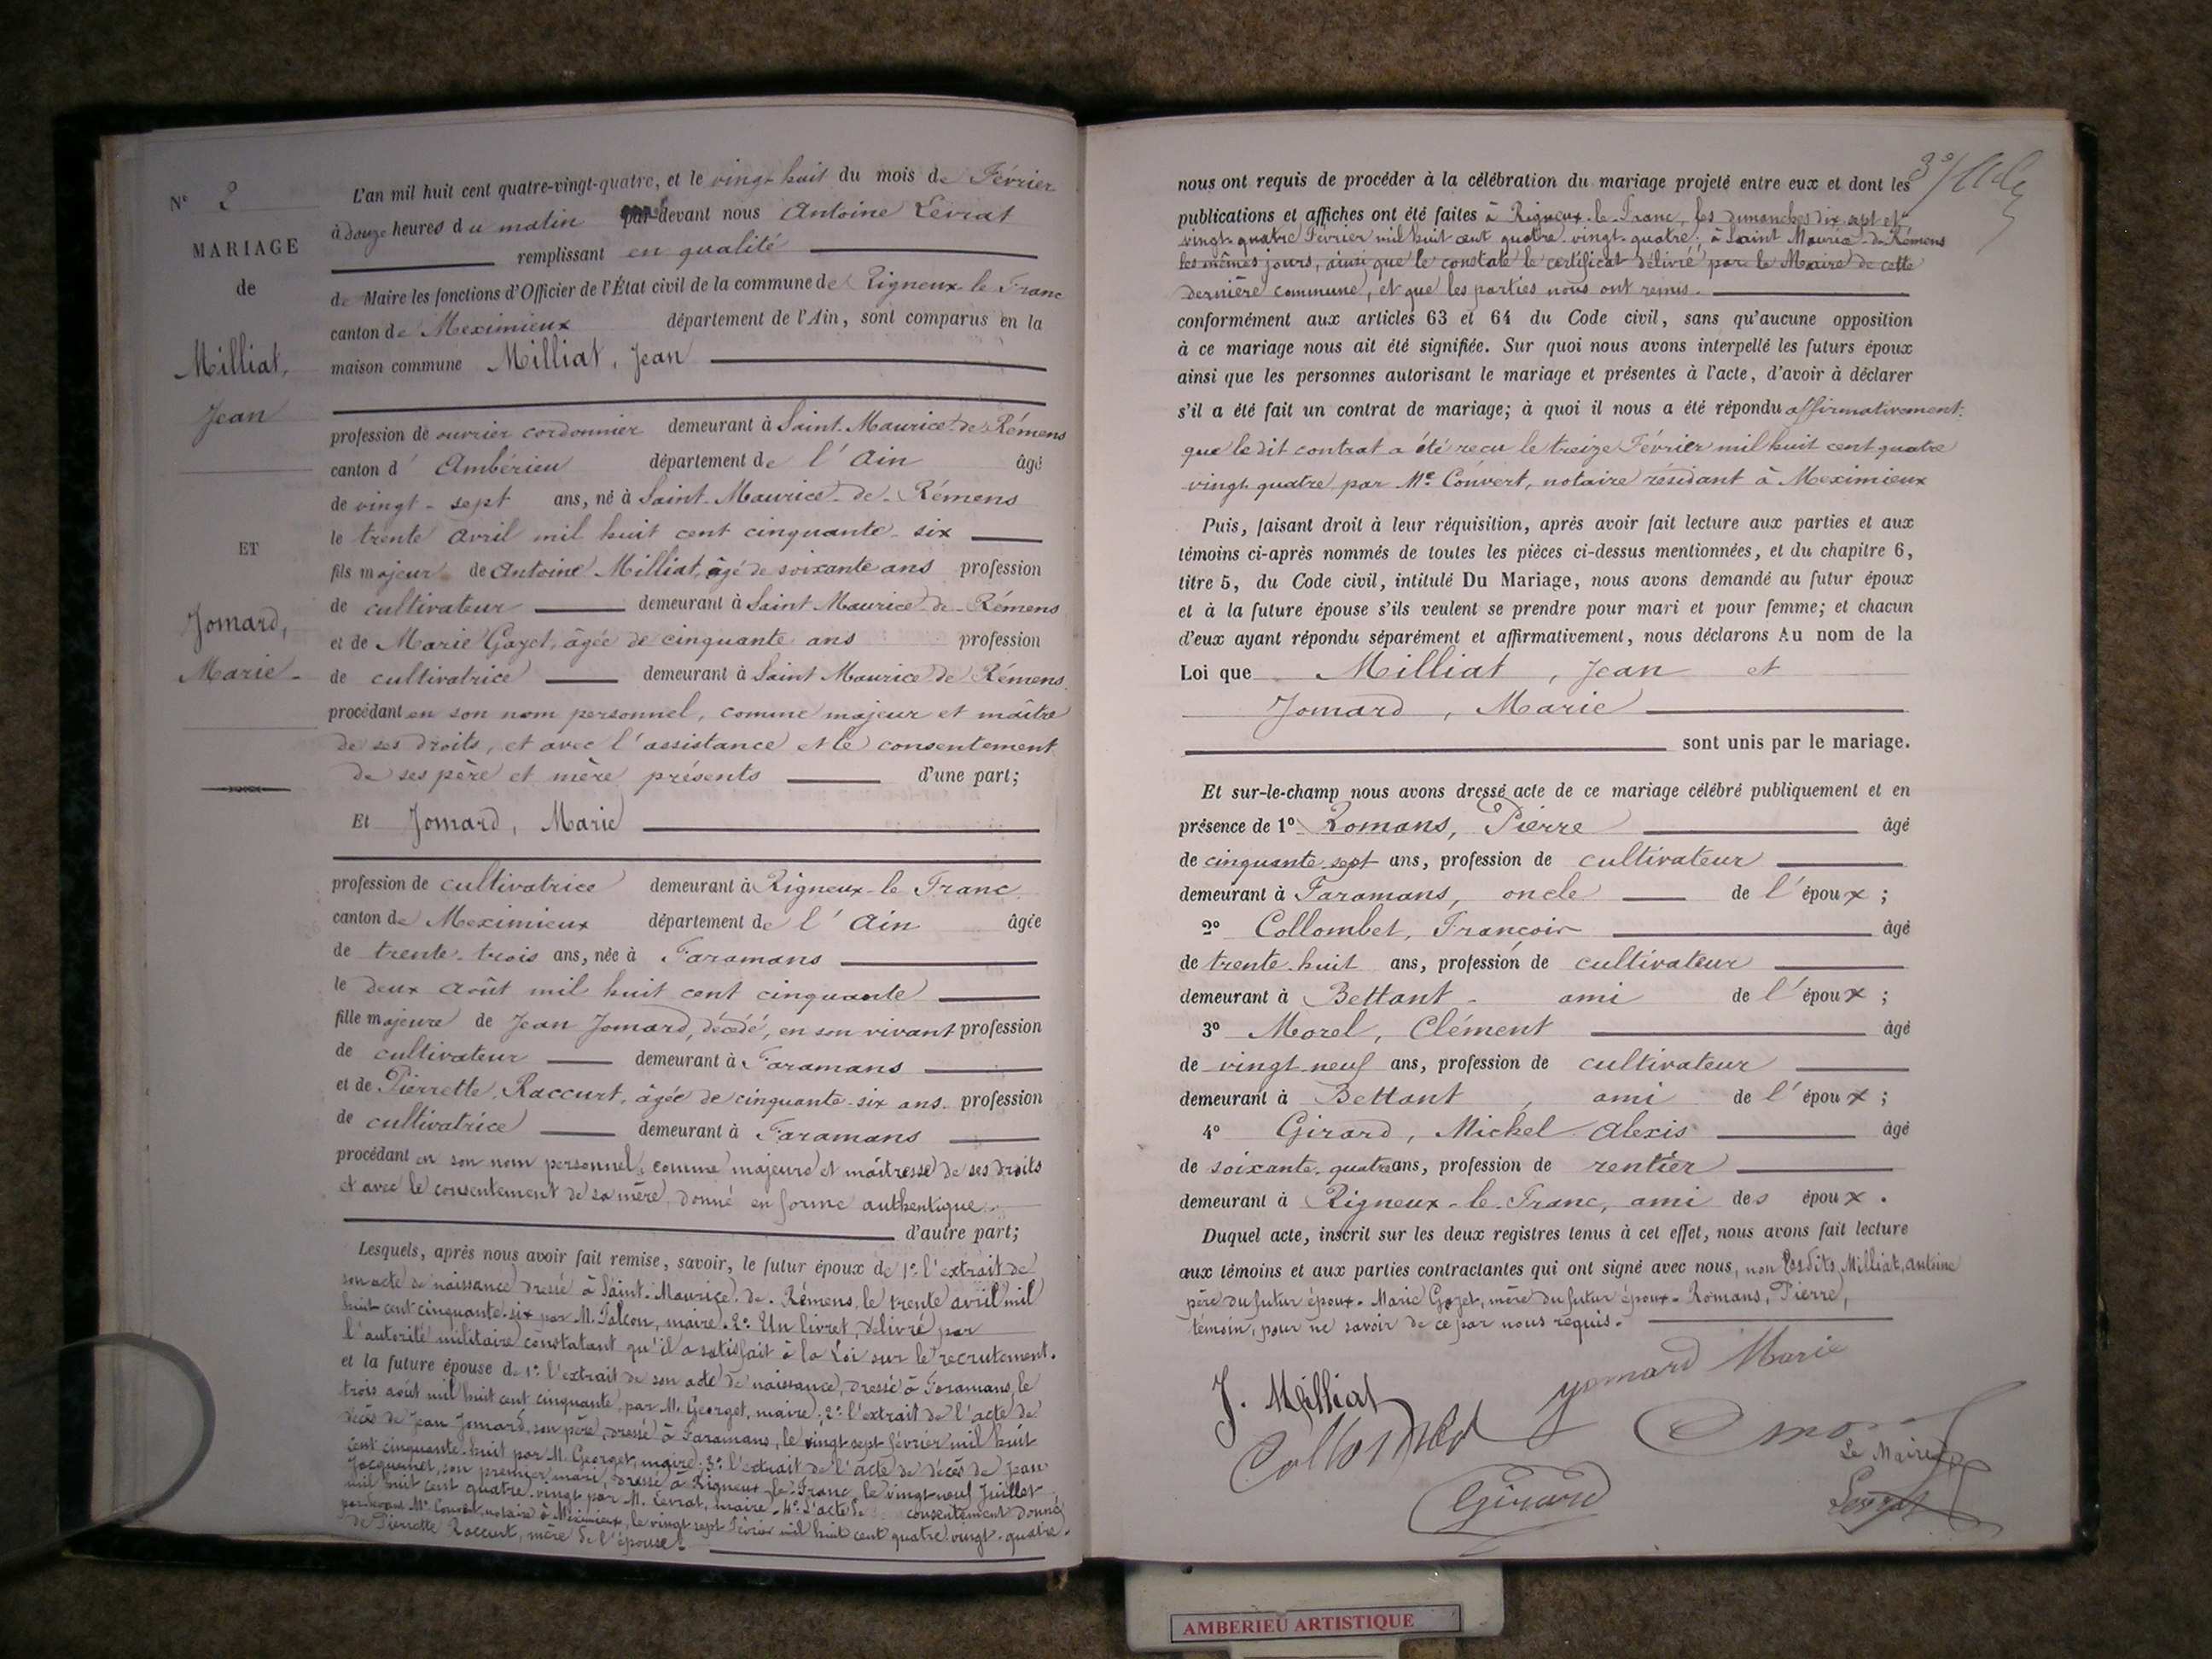 N° 2
MARIAGE
de
Milliat,
Jean
ET
Jomard,
Marie
L'an mil huit cent quatre-vingt-quatre, et le vingt huit du mois de Février
à douze heures du matin par devant nous Antoine Levrat
remplissant en qualité
de Maire les fonctions d'Officier de l'État civil de la commune de Rigneux-le Franc
canton de Meximieux département de l'Ain, sont comparus en la
maison commune Milliat, Jean
profession de ouvrier cordonnier demeurant à Saint-Maurice-de-Rémens
canton d' Ambérieu département de l'Ain âgé
de vingt-sept ans, né à Saint-Maurice-de-Rémens
le trente Avril mil huit cent cinquante-six
fils majeur de Antoine Milliat, âgé de soixante ans profession
de cultivateur demeurant à Saint Maurice-de-Rémens
et de Marie Gozet, âgée de cinquante ans profession
de cultivatrice demeurant à Saint Maurice de Rémens
procédant en son nom personnel, comme majeur et maître
de ses droits, et avec l'assistance et le consentement
de ses père et mère présents d'une part;
Et Jomard, Marie
profession de cultivatrice demeurant à Rigneux-le Franc
canton de Meximieux département de l'Ain âgée
de trente-trois ans, née à Faramans
le deux Août mil huit cent cinquante
fille majeure de Jean Jomard, décédé, en son vivant profession
de cultivateur demeurant à Faramans
et de Pierrette Raccurt, âgée de cinquante-six ans profession
de cultivatrice demeurant à Faramans
procédant en son nom personnel, comme majeure et maîtresse de ses droits
et avec le consentement de sa mère donné en forme authentique
d'autre part;
Lesquels, après nous avoir fait remise, savoir, le futur époux de 1° l'extrait de
son acte de naissance dressé à Saint-Maurice-de-Rémens, le trente avril mil
huit cent cinquante-six par M. Falcon, maire. 2° Un livret, délivré par
l'autorité militaire constatant qu'il a satisfait à la Loi sur le recrutement.
et la future épouse de 1° l'extrait de son acte de naissance, dressé à Faramans, le
trois août mil huit cent cinquante, par M. Georget, maire; 2° l'extrait de l'acte de
décès de Jean Jomard, son père, dressé à Faramans, le vingt-sept février mil huit
cent cinquante-huit par M. Georget, maire; 3° l'extrait de l'acte de décès de Jean
Jacquemet, son premier mari, dressé à Rigneux-le-Franc, le vingt-neuf Juillet
mil huit cent quatre-vingt par M. Levrat, maire. 4° L'acte de consentement donné
par devant Me Convert, notaire à Meximieux, le vingt-sept Février mil huit cent quatre-vingt-quatre.
de Pierrette Raccurt, mère de l'épouse.
nous ont requis de procéder à la célébration du mariage projeté entre eux et dont les
publications et affiches ont été faites à Rigneux-le-Franc, les dimanches dix-sept et
vingt-quatre Février mil huit cent quatre-vingt-quatre; à Saint Maurice-de-Rémens
les mêmes jours, ainsi que le constate le certificat délivré par le Maire de cette
dernière commune, et que les parties nous ont remis.
conformément aux articles 63 et 64 du Code civil, sans qu'aucune opposition
à ce mariage nous ait été signifiée. Sur quoi nous avons interpellé les futurs époux
ainsi que les personnes autorisant le mariage et présentes à l'acte, d'avoir à déclarer
s'il a été fait un contrat de mariage; à quoi il nous a été répondu affirmativement:
que le dit contrat a été reçu le treize Février mil huit cent quatre
vingt quatre par Me Convert, notaire résidant à Meximieux
Puis, faisant droit à leur réquisition, après avoir fait lecture aux parties et aux
témoins ci-après nommés de toutes les pièces ci-dessus mentionnées, et du chapitre 6,
titre 5, du Code civil, intitulé Du Mariage, nous avons demandé au futur époux
et à la future épouse s'ils veulent se prendre pour mari et pour femme; et chacun
d'eux ayant répondu séparément et affirmativement, nous déclarons Au nom de la
Loi que Milliat, Jean et
Jomard, Marie
sont unis par le mariage.
Et sur-le-champ nous avons dressé acte de ce mariage célébré publiquement et en
présence de 1° Romans, Pierre âgé
de cinquante-sept ans, profession de cultivateur
demeurant à Faramans, oncle de l'époux;
2° Collombet, François âgé
de trente-huit ans, profession de cultivateur
demeurant à Bettant ami de l'époux;
3° Morel, Clément âgé
de vingt neuf ans, profession de cultivateur
demeurant à Bettant, ami de l'époux;
4° Girard, Michel Alexis âgé
de soixante-quatre ans, profession de rentier
demeurant à Rigneux-le-Franc, ami des époux.
Duquel acte, inscrit sur les deux registres tenus à cet effet, nous avons fait lecture
aux témoins et aux parties contractantes qui ont signé avec nous, non lesdits Milliat, Antoine
père du futur époux, Marie Gozet, mère du futur époux, Romans, Pierre,
témoin, pour ne savoir de ce par nous requis.
J. Milliat
Jomard Marie
Collombet
Le Maire
Girard
Levrat
AMBERIEU ARTISTIQUE